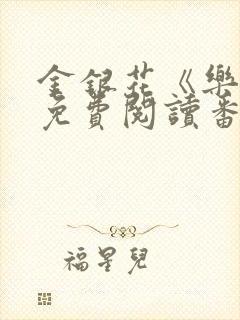 金銀花《樂
免費閱讀番
福星兒